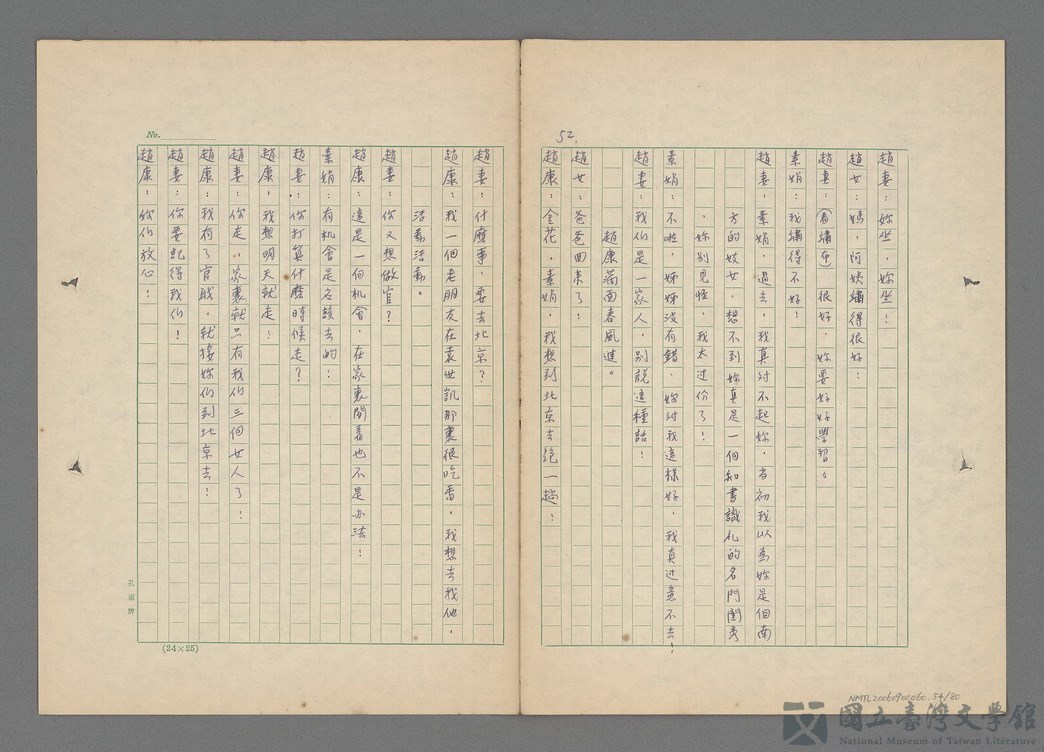 52.
趙妻：妳坐，妳坐！
趙女：媽，阿姨繡得很好！
趙妻：（看繡包）很好，妳要好好學習。
素娟：我繡得不好！
趙妻：素娟，過去，我真对不起妳，当初我以為妳是個南
方的妓女，想不到妳真是一個知書識礼的名門閨秀
，妳別見怪，我太过份了！
素娟：不啦，姊姊沒有錯，妳对我這樣好，我真过意不去！
趙妻：我们是一家人，別說這種話！
趙康滿面春風進。
趙女：爸爸回來了！
趙康：金花，素娟，我想到北京去跑一趟！
No.
趙妻：什麼事，要去北京？
趙康：我一個老朋友在袁世凱那裏很吃香，我想去找他，
活動活動。
趙妻：你又想做官？
趙康：這是一個机會，在家裏閒着也不是办法！
素娟：有机會是应該去的！
趙妻：你打算什麼時候走？
趙康：我想明天就走！
趙妻：你走，家裏就只有我们三個女人了！
趙康：我有了官职，就接妳们到北京去！
趙妻：你要記得我们！
趙康：你们放心！
(24×25)
NMTL20060900060.54/80
國立臺灣文學館
National Museum of Taiwan Literature